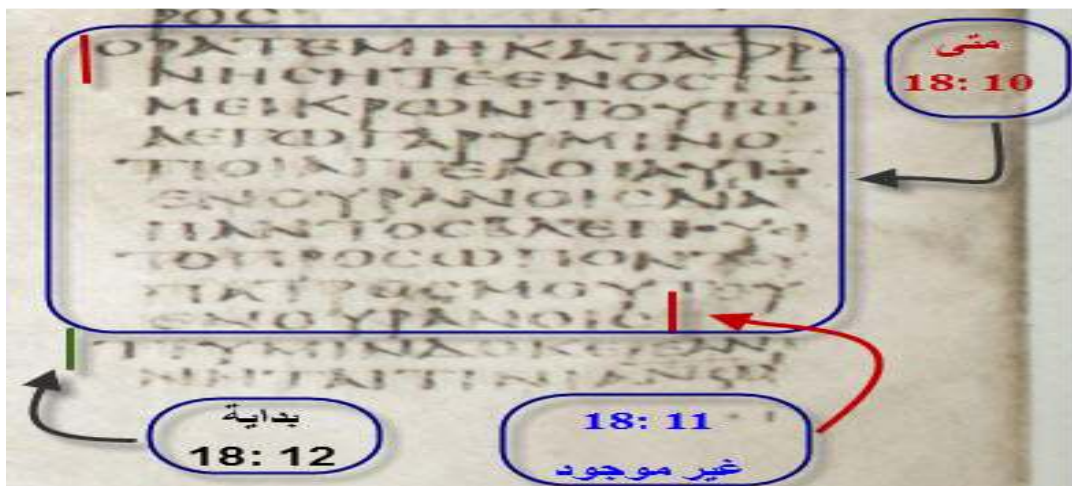 ΡΟC
ΟΡΑΤΕΜΗΚΑΤΑΦΡΟ
ΝΗCΗΤΕΕΝΟCΤΩ
ΜΕΙΚΡΩΝΤΟΥΤΩ
ΛΕΓΩΓΑΡΥΜΙΝΟ
ΤΙΟΙΑΓΓΕΛΟΙΑΥΤΩ
ΕΝΟΥΡΑΝΟΙCΔΙΑ
ΠΑΝΤΟCΒΛΕΠΟΥCΙ
ΤΟΠΡΟCΩΠΟΝΤΟΥ
ΠΑΤΡΟCΜΟΥΤΟΥ
ΕΝΟΥΡΑΝΟΙC
ΤΙΥΜΙΝΔΟΚΕΙΕΑΝ
متى
18: 10
بداية
18: 12
18: 11
غير موجود